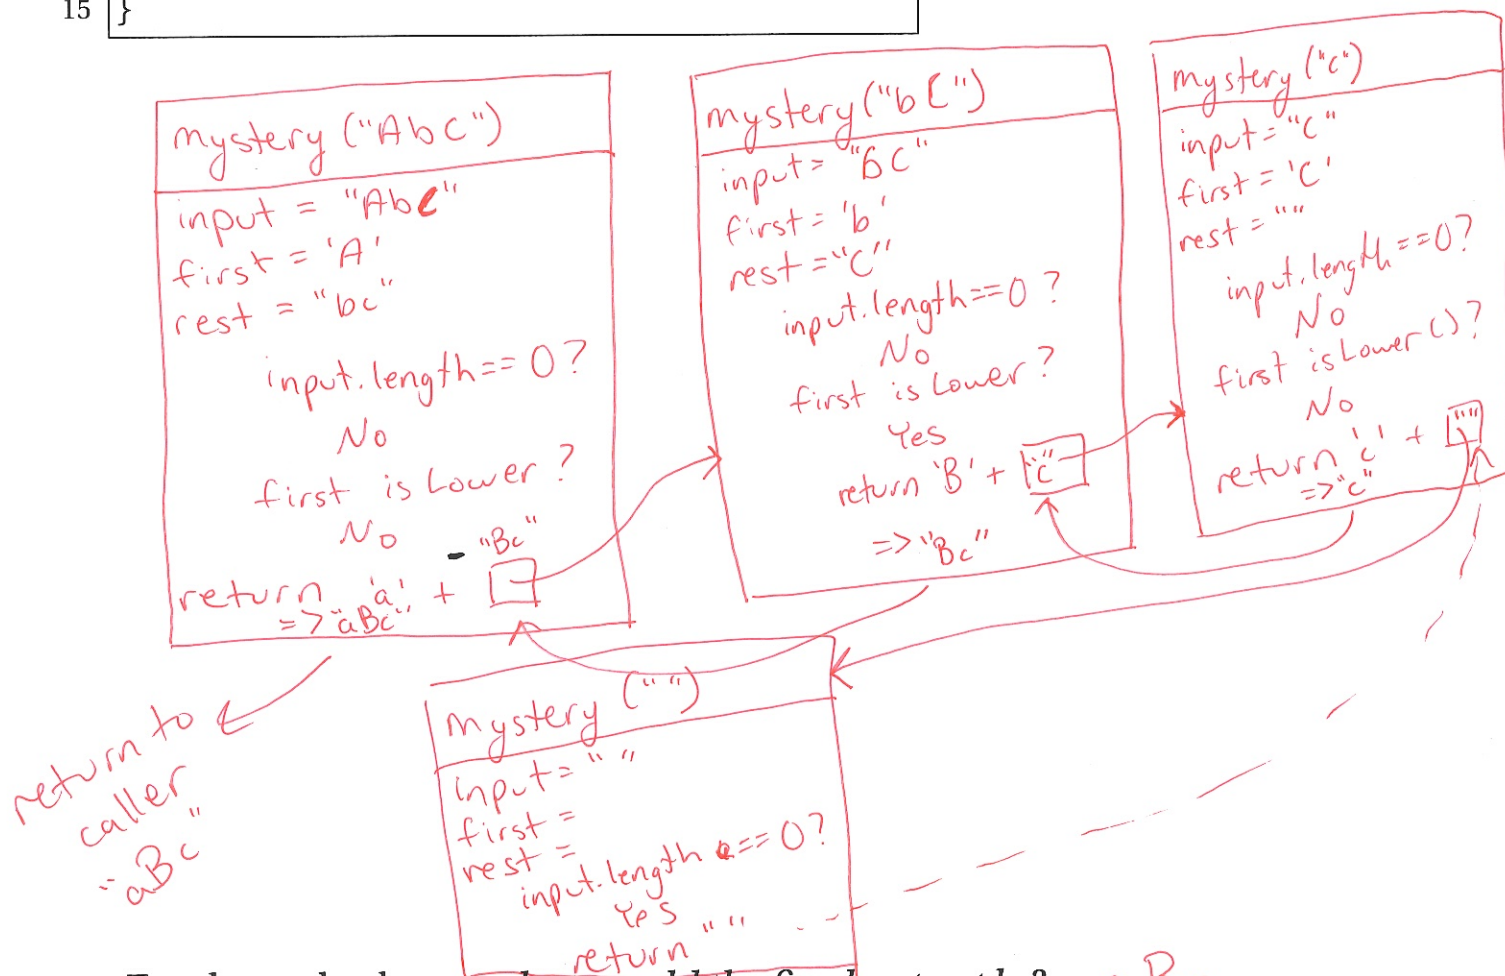 15 }
mystery ("AbC")
input = "AbC"
first = 'A'
rest = "bC"
input.length == 0 ?
No
first is Lower ?
No
"Bc"
return 'a' +
=> "aBc"
return to
caller
"aBc"
mystery ("bC")
input = "bC"
first = 'b'
rest = "C"
input.length == 0 ?
No
first is Lower ?
Yes
return 'B' + "c"
=> "Bc"
mystery ("C")
input = "C"
first = 'C'
rest = ""
input.length == 0?
No
first isLower()?
No
return 'c' + ""
=> "c"
mystery ("")
input = ""
first =
rest =
input.length == 0?
Yes
return ""